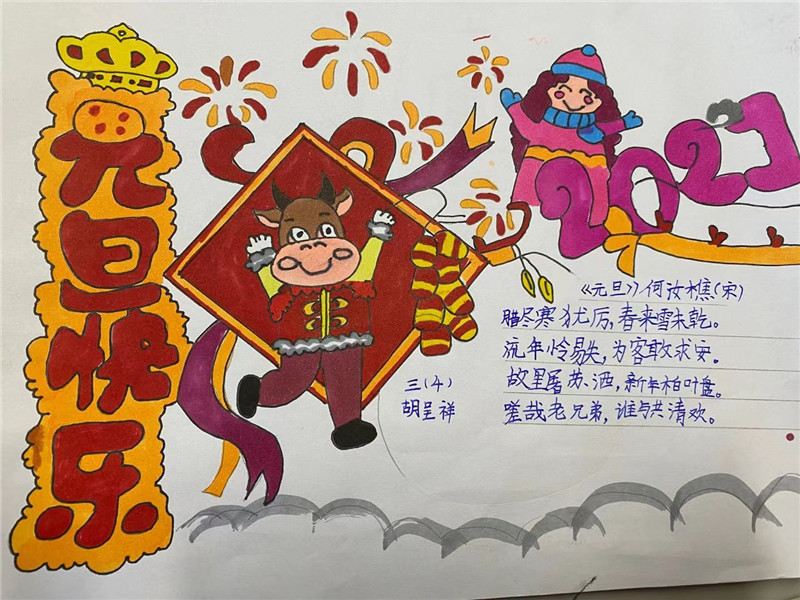 元旦快乐
2021
《元旦》何汝樵(宋)
腊尽寒犹厉,春来雪未乾。
流年怜易失,为客敢求安。
故里屠苏酒,新年柏叶盘。
嗟哉老兄弟,谁与共清欢。
三(4)
胡呈祥